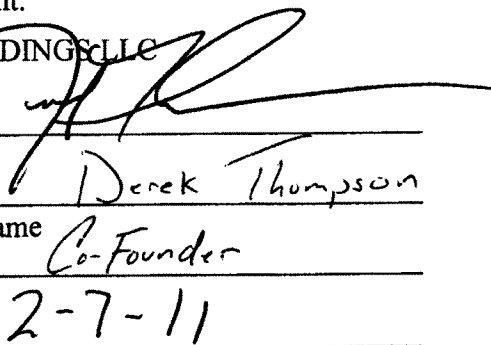 nt.
DINGS LLC
Derek Thompson
ame
Co-Founder
2-7-11